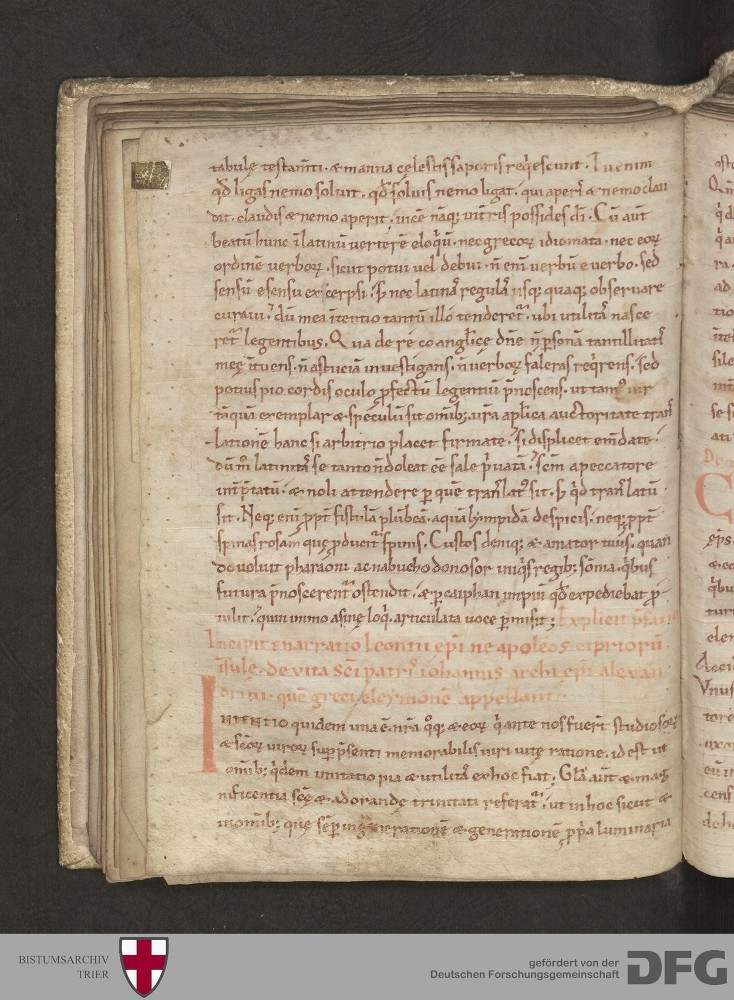 tabulę testam̄ti · & manna cęlestis saporis reqͥescunt · Tu enim
qd̄ ligas nemo soluit · qd̄ soluis nemo ligat · qui aperis & nemo clau
dit · claudis & nemo aperit
beatū hunc ī latinū verterē eloqͥū · nec grecoꝝ idiomata · nec eoꝝ
ordinē verboꝝ · sicut potui uel debui · n̄ eni uerbū e uerbo · sed
sensū e sensu excerpsi
curaui · dū mea ītentio tantū illo tenderet᷑ · ubi utilitas nasce
ret᷑ legentibus · Qua de re co anglicę dn̄e n̄ ꝑsonā tantillitatis
meę ītuens · n̄ astuciā inuestigans · n̄ verboꝝ faleras reqͥrens · sed
potius pio cordis oculo ꝓfectū legentiū p̄noscens · ut tantꝰ uir
tāquā exemplar & spęculū sit omībꝫ · uŕa aplica auctoritate trans
lationē hanc si arbitrio placet firmate · si displicet em̄date ·
dū latinitas se tanto n̄ doleat ēē sale pͥuatā · scm̄ a peccatore
int̄p̄tatū · & noli attendere ꝑ quē translatꝰ sit · s; qͥd translatū
sit · Neqꝫ eni ꝓpt̄ fistulā plūbeā · aquā lympidā despicis · neqꝫ ꝓpt̄
spinas rosam quę ꝓducit᷑ spinis · Custos deniqꝫ & amator tuus · quan
do uoluit pharaoni ac nabuchodonosor iniqͥs regibꝫ somīa · qͥbus
futura p̄noscerent᷑ ostendit · & ꝑ caiphan impiū qd̄ expediebat ꝓ
tulit · quin immo asinę loqͥ · articulata uoce ꝑmisit ; Explicit p̄fatio
Incipit enarratio leontii ep̄i neapoleos cipriorū
īsulę · de vita sc̄i patris iohannis archi ep̄i alexan
drini · quē greci eleymonē appellant ·
INTENTIO quidem una ē · nr̄a qͦqꝫ & eoꝝ qͥ ante nos fuer̄t studiosoꝝ
& sc̄oꝝ uiroꝝ suꝑ p̄senti memorabilis uiri uitę ratione · id est ut
omībꝫ qͥdem imitatio pia & utilitas ex hoc fiat ; Gl̄a aūt & mag
nificentia sc̄ę & adorandę trinitati referat᷑ · ut in hoc sicut &
in omībꝫ quę sēꝑ in generationē & generationē ꝓpͥa luminaria
BISTUMSARCHIV
TRIER
gefördert von der
Deutschen Forschungsgemeinschaft
DFG